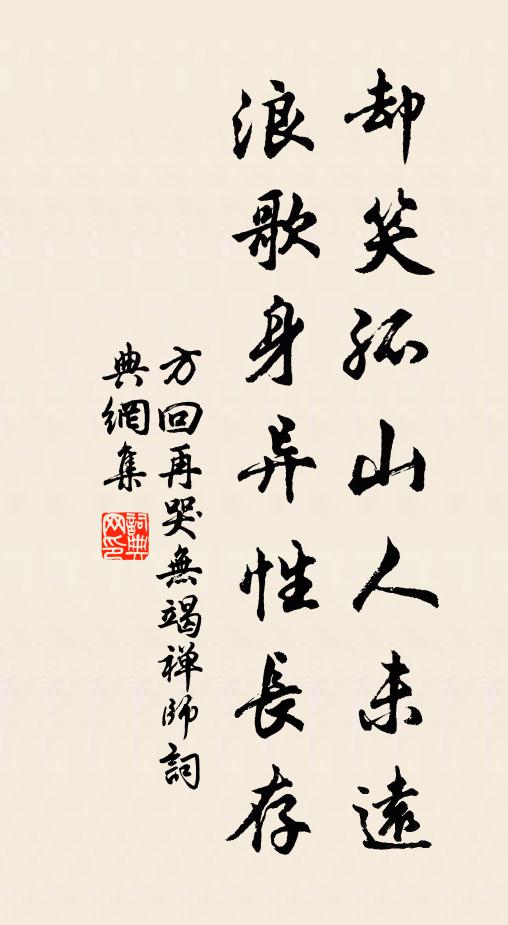 却笑孤山人未遠
浪歌身异性長存
方回再哭無竭禅師詞
典網集
詞典網印